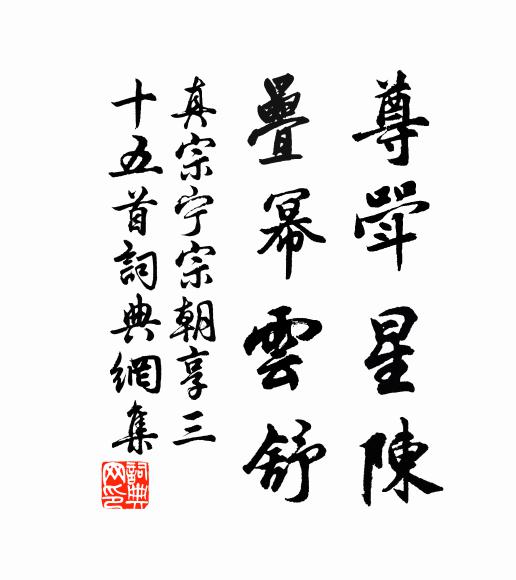 尊斝星陳
疊冪雲舒
真宗宁宗朝享三
十五首詞典網集
詞典
网印